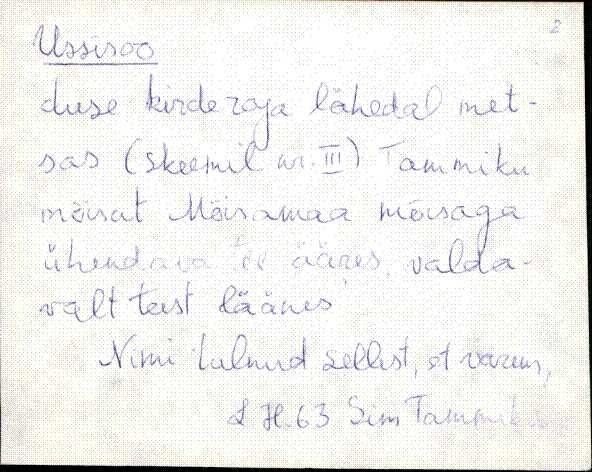 2
Ussisoo
duse kirderaja lähedal met-
sas (skeemil nr. III) Tammiku
mõisat Mõisamaa mõisaga
ühendava tee ääres, valda-
valt teest läänes
Nimi tulnud sellest, et varem,
L H. 63 Sim Tammiku